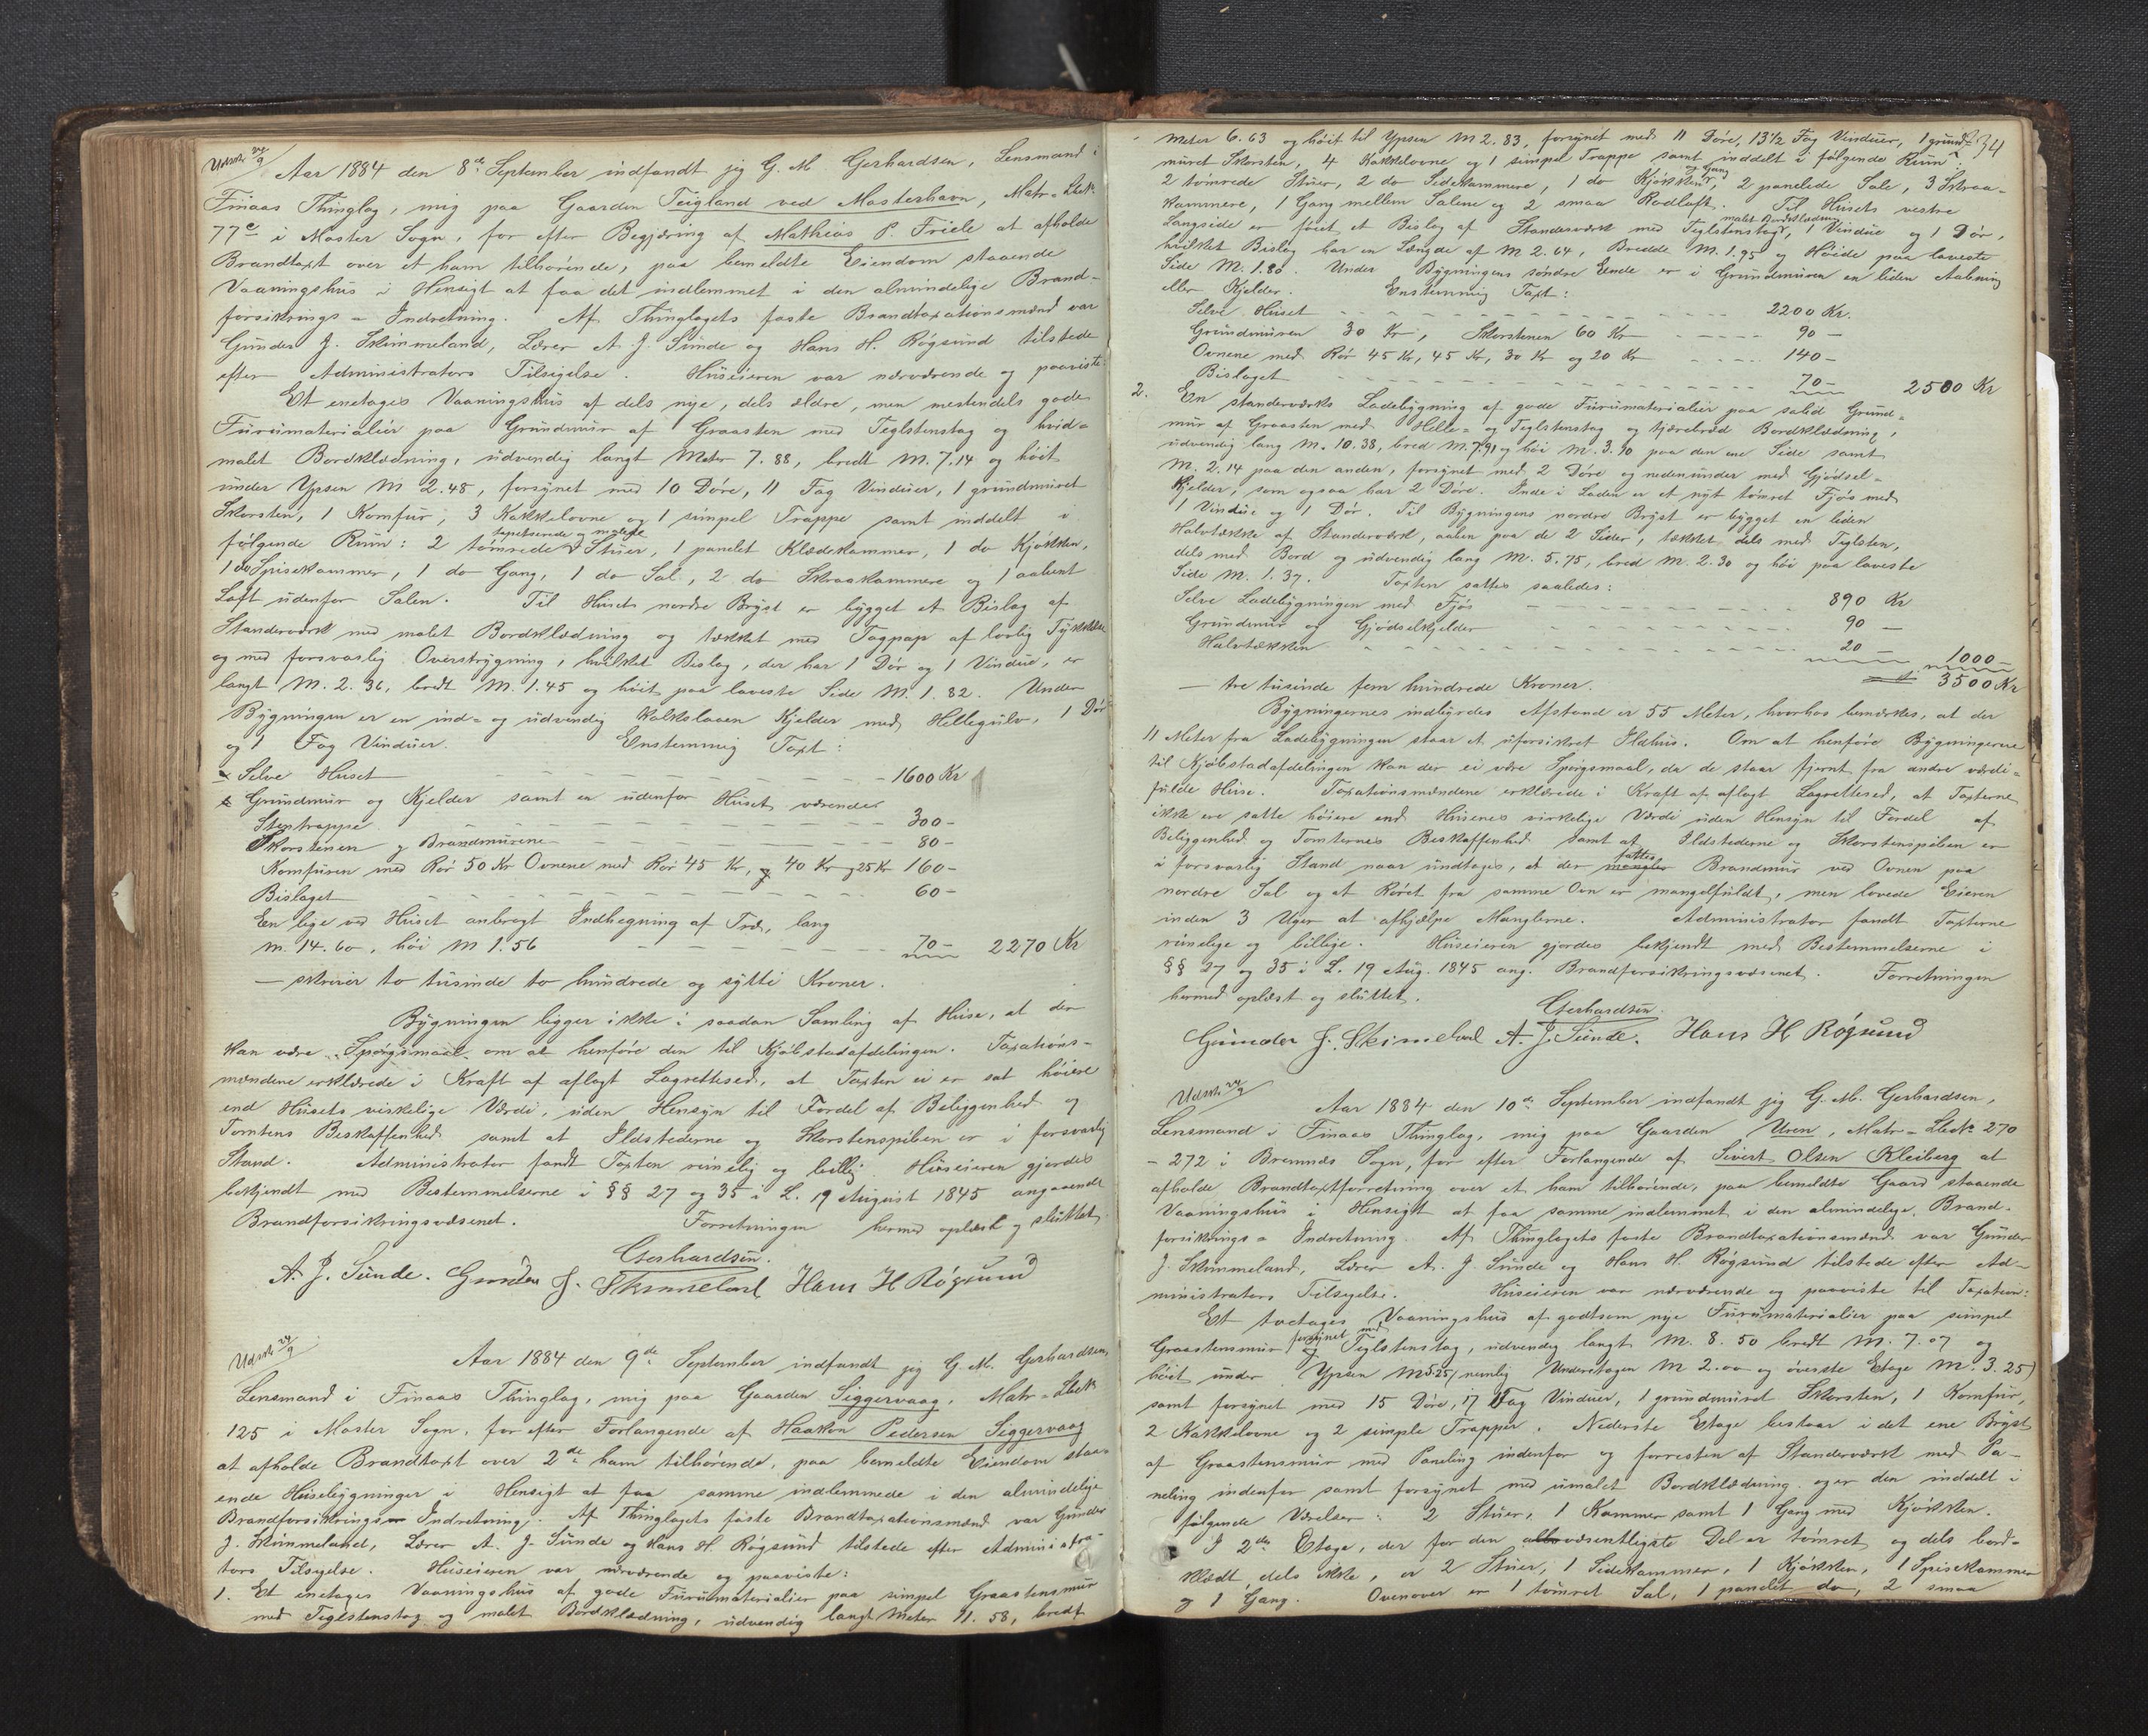 Udsk. 29/9
Aar 1884 den 8de September indfandt jeg G. M. Gerhardsen, Lensmand i
Finaas Thinglag, mig paa Gaarden Teigland ved Mosterhavn, Matr-Løbe№
77c i Moster Sogn, for efter Begjæring af Mathias P. Friele at afholde
Brandtaxt over et ham tilhørende, paa bemeldte Eiendom staaende
Vaaningshus i Hensigt at faa det indlemmet i den almindelige Brand-
forsikrings-Indretning. Af Thinglagets faste Brandtaxationsmænd var
Gunder J. Skimmeland, Lærer A. J. Sunde og Hans H. Røgsund tilstede
efter Administrators Tilsigelse. Huseieren var nærværende og paaviste:
Et enetages Vaaningshus af dels nye, dels ældre, men mestendels gode
Furumaterialier paa Grundmur af Graasten med Teglstenstag og hvid-
malet Bordklædning, udvendig langt Meter 7.88, bredt M. 7.14 og høit
under Ypsen M 2.48, forsynet med 10 Døre, 11 Fag Vinduer, 1 grundmuret
Skorsten, 1 Komfur, 3 Kakkelovne og 1 simpel Trappe samt inddelt i
tapetserede og malede
følgende Rum: 2 tømrede Stuer, 1 panelet Klædekammer, 1 do Kjøkken,
1 do Spisekammer, 1 do Gang, 1 do Sal, 2 do Skraakammere og 1 aabent
Loft udenfor Salen. Til Husets nordre Bryst er bygget et Bislag af
Standerværk med malet Bordklædning og tækket med Tagpap af lovlig Tykkelse
og med forsvarlig Overstrygning, hvilket Bislag, der har 1 Dør og 1 Vindue, er
langt M. 2.36, bredt M. 1.45 og høit paa laveste Side M. 1.82. Under
Bygningen er en ind- og udvendig Kalkslaaen Kjelder med Hellegulv, 1 Dør
og 1 Fag Vinduer. Enstemmig Taxt:
Selve Huset 1600 Kr
Grundmur og Kjelder samt en udenfor Huset værende
Stentrappe 300 -
Skorstenen og Brandmurene 80 -
Komfuren med Rør 50 Kr Ovnene med Rør 45 Kr, 40 Kr og 25 Kr 160 -
Bislaget 60 -
En lige ved Huset anbragt Indhegning af Træ, lang
M. 14.60, høi M 1.56 70 - 2270 Kr
— skriver to tusinde to hundrede og sytti Kroner.
Bygningen ligger ikke i saadan Samling af Huse, at der
kan være Spørgsmaal om at henføre den til Kjøbstadafdelingen. Taxations-
mændene erklærede i Kraft af aflagt Lagrettesed, at Taxten ei er sat høiere
end Husets virkelige Værdi, uden Hensyn til Fordel af Beliggenhed og
Tomtens Beskaffenhed samt at Ildstederne og Skorstenspiben er i forsvarlig
Stand. Administrator fandt Taxten rimelig og billig. Huseieren gjordes
bekjendt med Bestemmelserne i §§ 27 og 35 i L. 19 August 1845 angaaende
Brandforsikringsvæsenet. Forretningen hermed oplæst og sluttet.
Gerhardsen.
A. J. Sunde. Gunder J. Skimeland Hans H Røgsund
Udsk. 29/9
Aar 1884 den 9de September indfandt jeg G. M. Gerhardsen,
Lensmand i Finaas Thinglag, mig paa Gaarden Siggervaag, Matr-Løbe№
125 i Moster Sogn, for efter Forlangende af Haakon Pedersen Siggervaag
at afholde Brandtaxt over 2de ham tilhørende, paa bemeldte Eiendom staa-
ende Husebygninger i Hensigt at faa samme indlemmede i den almindelige
Brandforsikrings-Indretning. Af Thinglagets faste Brandtaxationsmænd var Gunder
J. Skimmeland, Lærer A. J. Sunde og Hans H. Røgsund tilstede efter Administra-
tors Tilsigelse. Huseieren var nærværende og paaviste:
1. Et enetages Vaaningshus af gode Furumaterialier paa simpel Graastensmur
med Teglstenstag og malet Bordklædning, udvendig langt Meter 11.58, bredt
34
Meter 6.63 og høit til Ypsen M 2.83, forsynet med 11 Døre, 13½ Fag Vinduer, 1 grund-
muret Skorsten, 4 Kakkelovne og 1 simpel Trappe samt inddelt i følgende Rum:
og Gang
2 tømrede Stuer, 2 do Sidekammere, 1 do Kjøkken, 2 panelede Sale, 3 Skraa-
kammere, 1 Gang mellem Salene og 2 smaa Rodloft. Til Husets vestre
malet Bordklædning
Langside er føiet et Bislag af Standerværk med Teglstenstag, 1 Vindue og 1 Dør,
hvilket Bislag har en Længde af M 2.64, Bredde M. 1.95 og Høide paa laveste
Side M. 1.80. Under Bygningens søndre Ende er i Grundmuren en liden Aabning
eller Kjelder. Enstemmig Taxt:
Selve Huset 2200 Kr.
Grundmuren 30 Kr, Skorstenen 60 Kr 90 -
Ovnene med Rør 45 Kr, 45 Kr, 30 Kr og 20 Kr 140 -
Bislaget 70 - 2500 Kr
2. En standerværks Ladebygning af gode Furumaterialier paa solid Grund-
mur af Graasten med Helle- og Teglstenstag og tjærebræd Bordklædning,
udvendig lang M. 10.38, bred M. 7.91 og høi M. 3.90 paa den ene Side samt
M. 2.14 paa den anden, forsynet med 2 Døre og nedenunder med Gjødsel-
kjelder, som ogsaa har 2 Døre. Inde i Laden er et nyt tømret Fjøs med
1 Vindue og 1 Dør. Til Bygningens nordre Bryst er bygget en liden
Halvtække af Standerværk, aaben paa de 2 Sider, tækket dels med Teglsten,
dels med Bord og udvendig lang M. 5.75, bred M. 2.30 og høi paa laveste
Side M. 1.37. Taxten sattes saaledes:
Selve Ladebygningen med Fjøs 890 Kr
Grundmur og Gjødselkjelder 90 -
Halvtækken 20 - 1000 -
— tre tusinde fem hundrede Kroner. 3500 Kr
Bygningernes indbyrdes Afstand er 55 Meter, hvorhos bemærkes, at der
11 Meter fra Ladebygningen staar et uforsikret Ildhus. Om at henføre Bygningerne
til Kjøbstadafdelingen kan der ei være Spørgsmaal, da de staar fjernt fra andre værdi-
fulde Huse. Taxationsmændene erklærede i Kraft af aflagt Lagrettesed, at Taxterne
ikke ere satte høiere end Husenes virkelige Værdi uden Hensyn til Fordel af
Beliggenhed og Tomternes Beskaffenhed samt at Ildstederne og Skorstenspiben er
fattes
i forsvarlig Stand naar undtages, at der mangler Brandmur ved Ovnen paa
nordre Sal og at Røret fra samme Ovn er mangelfuldt, men lovede Eieren
inden 3 Uger at afhjælpe Manglerne. Administrator fandt Taxterne
rimelige og billige. Huseieren gjordes bekjendt med Bestemmelserne i
§§ 27 og 35 i L. 19 Aug. 1845 ang. Brandforsikringsvæsenet. Forretningen
hermed oplæst og sluttet.
Gerhardsen.
Gunder J. Skimeland A. J. Sunde. Hans H Røgsund
Udsk. 29/9
Aar 1884 den 10de September indfandt jeg G. M. Gerhardsen,
Lensmand i Finaas Thinglag, mig paa Gaarden Uren, Matr-Løbe№ 270
- 272 i Bremnes Sogn, for efter Forlangende af Sivert Olsen Kleiberg at
afholde Brandtaxtforretning over et ham tilhørende, paa bemeldte Gaard staaende
Vaaningshus i Hensigt at faa samme indlemmet i den almindelige Brand-
forsikrings-Indretning. Af Thinglagets faste Brandtaxationsmænd var Gunder
J. Skimmeland, Lærer A. J. Sunde og Hans H. Røgsund tilstede efter Ad-
ministrators Tilsigelse. Huseieren var nærværende og paaviste til Taxation:
Et toetages Vaaningshus af godtsom nye Furumaterialier paa simpel
forsynet med
Graastensmur og Teglstenstag, udvendig langt M. 8.50 bredt M. 7.07 og
høit under Ypsen M 5.25 (nemlig Underetagen M 2.00 og øverste Etage M. 3.25)
samt forsynet med 15 Døre, 17 Fag Vinduer, 1 grundmuret Skorsten, 1 Komfur,
2 Kakkelovne og 2 simple Trapper. Nederste Etage bestaar i det ene Bryst
af Graastensmur med Paneling indenfor og forresten af Standerværk med Pa-
neling indenfor samt forsynet med umalet Bordklædning og er den inddelt i
følgende Værelser: 2 Stuer, 1 Kammer samt 1 Gang med Kjøkken.
I 2den Etage, der for den væsentligste Del er tømret og dels bord-
klædt dels ikke, er 2 Stuer, 1 Sidekammer, 1 Kjøkken, 1 Spisekammer
og 1 Gang. Ovenover er 1 tømret Sal, 1 panelet do, 2 smaa